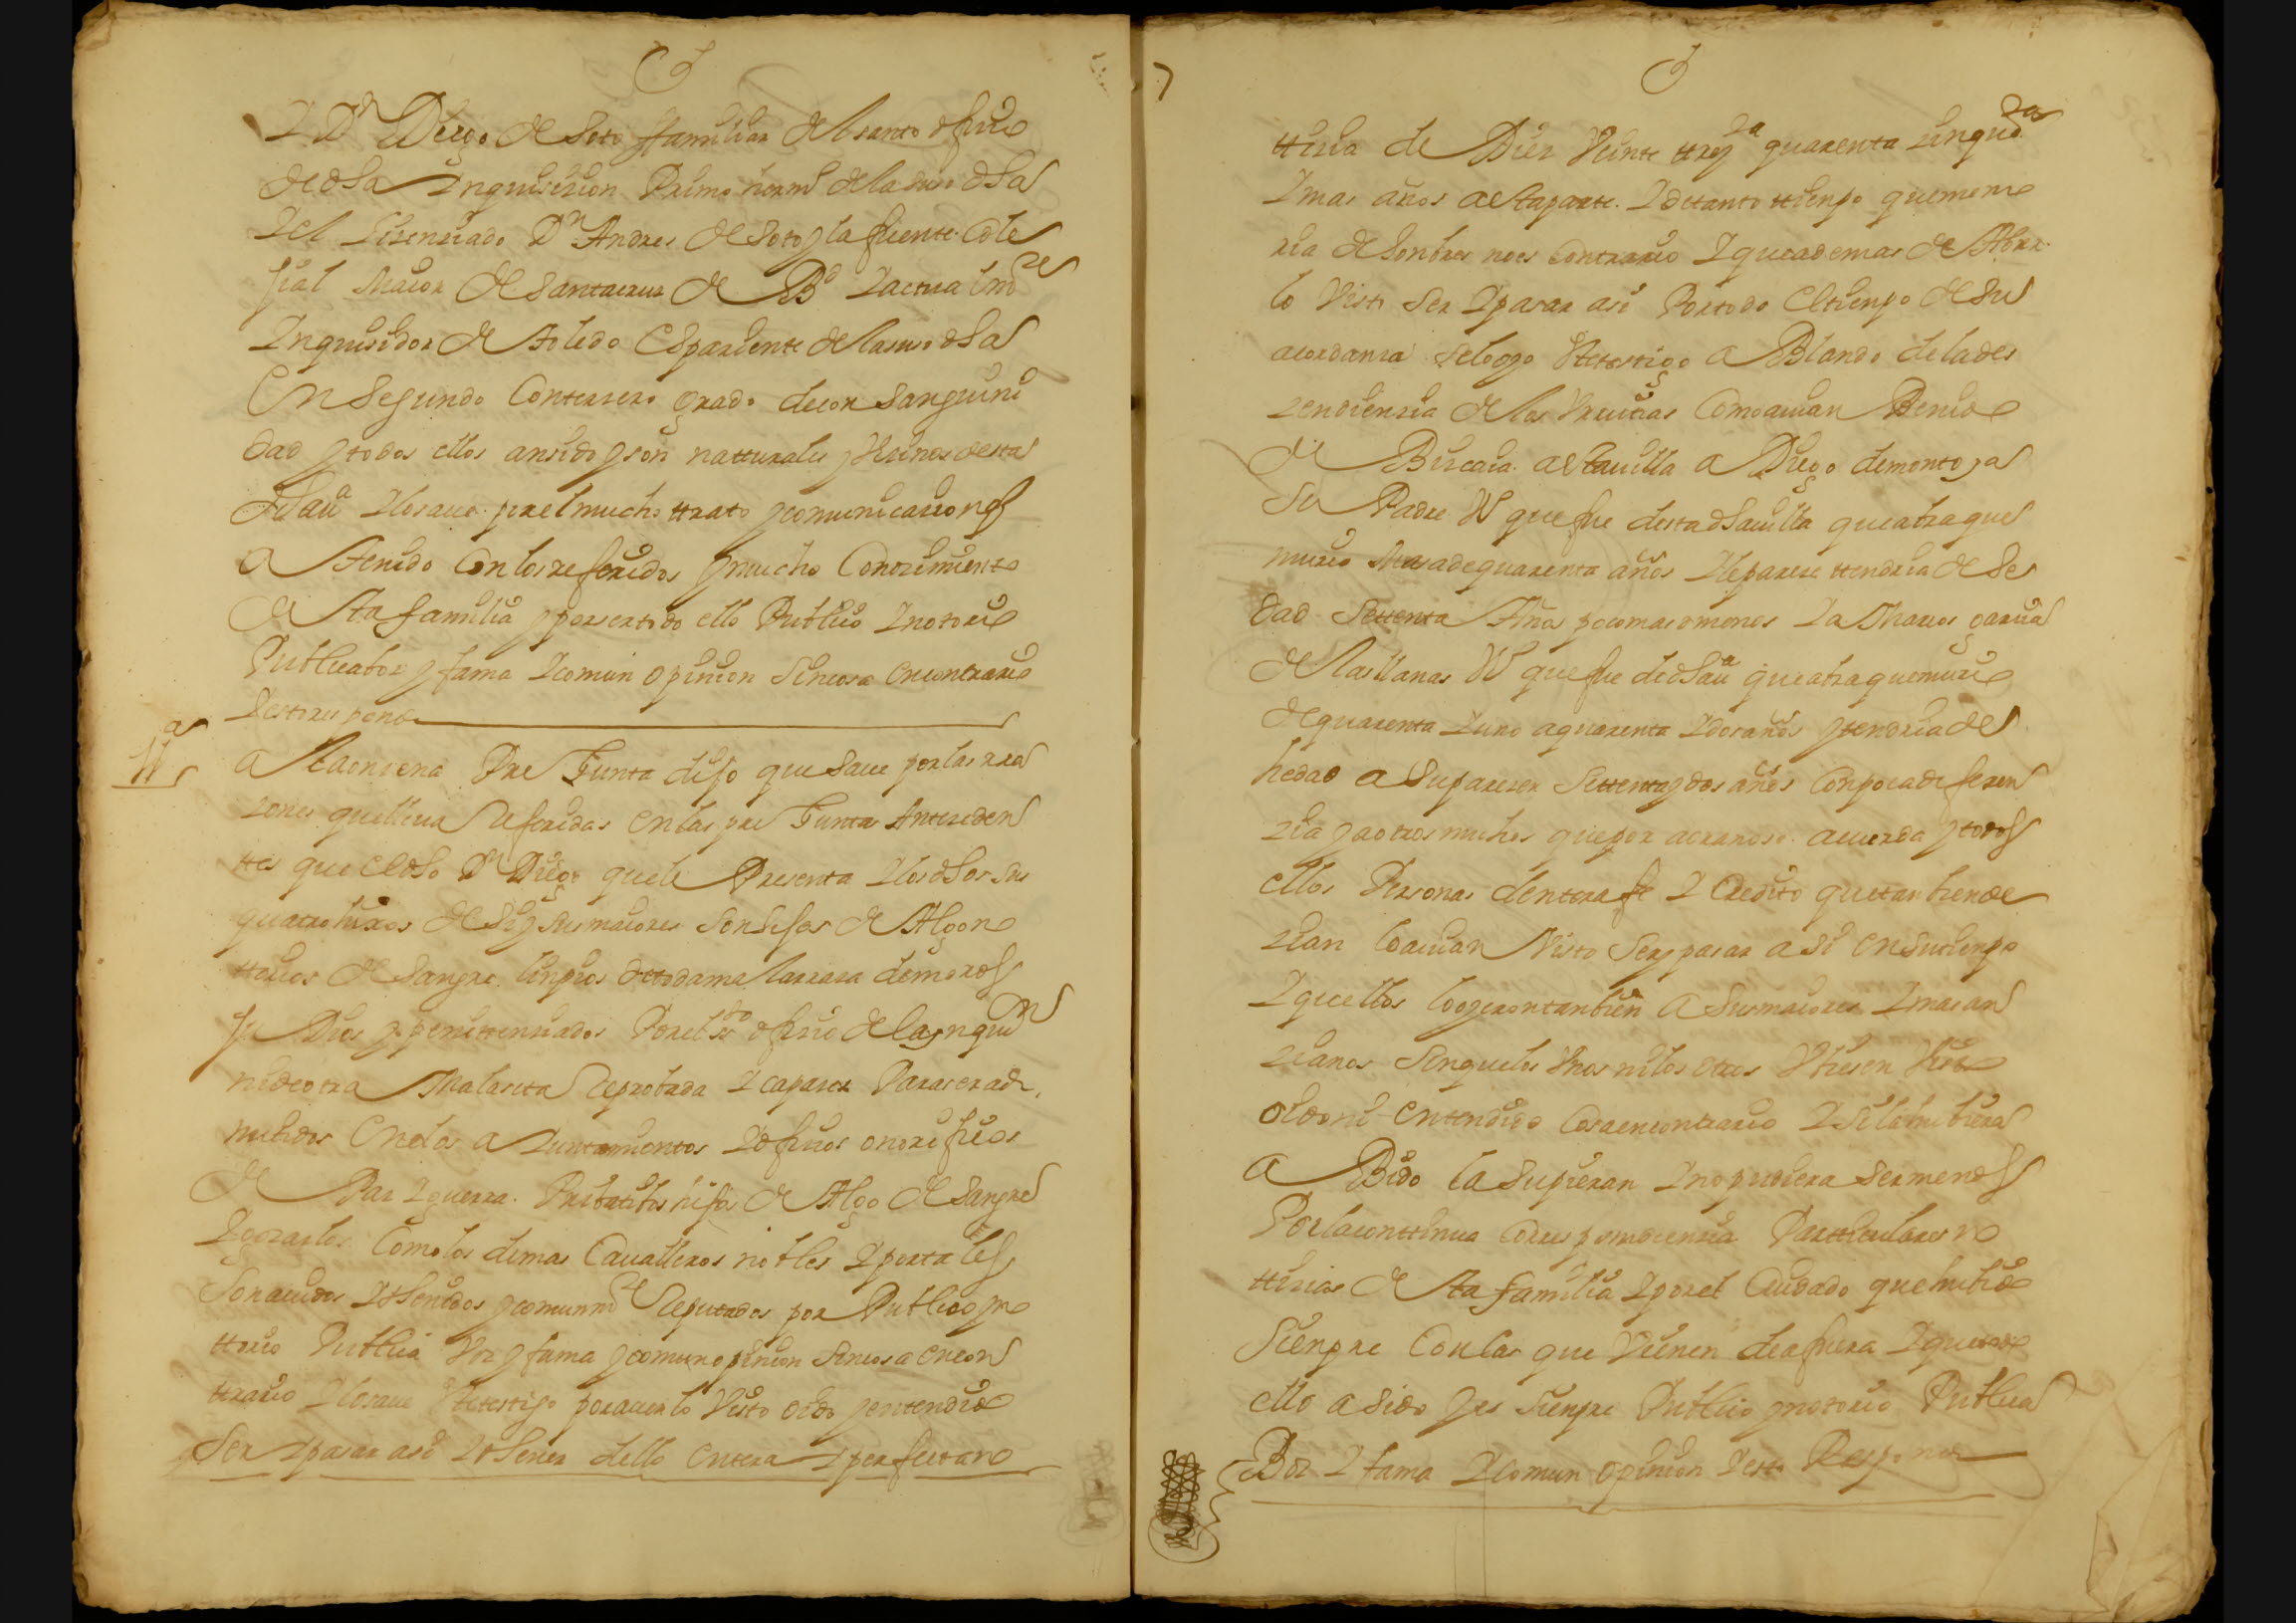 Y Dn Diego de Soto familiar del santo ofiçio
de dha Ynquisiçion Primo herno de la suso dha
Y el Liçençiado Dn Andres de Soto y la fuente Cole
jial Maior de Santacruz de Bd Y actualmte
Ynquisidor de Toledo Es pariente de la suso dha
En segundo Con terzero grado de con sanguini
dad y todos ellos an sido y son natturales y Veçinos desta
dha va Y lo saue por el mucho ttrato y comunicaçion q
a Tenido Con los referidos y mucho Conozimiento
de sta familia y por ser todo ello Publico Y notorio
Publica boz y fama Y comun opinion sin cosa en contrario
Y esto responde
11a
a la onzena Pre Funta dijo que saue por las rra
zones que lleua Referidas en las pre Funtas Antezeden
ttes que el dho Dn Diego que le Presenta Y los dhos sus
quatro
de si y sus maiores son hijos de Algo no
ttorios de sangre linpios de toda mala rraza de moros
judios y penittençiados Por el sto ofiçio de la ynquion
ni de otra Mala seta Reprobada Y capazes Para ser ad
mitidos En los aYuntamientos Y ofiçios onorificos
de Paz Y guerra Pribatibos hijos de Algo de sangre
Y gozarlos Como los demas Caualleros nobles Y por tales
son auidos Y thenidos y comunmte Reputados por Publico y no
ttorio Publica Voz y fama y comun opinion sin cosa en con
ttrario Y lo saue este testigo por auerlo Visto oido y entendido
ser Y pasar asi Y thener dello entera Y perfeta no
ttiçia de Diez Veinte ttreynta quarenta çinquenta
Y mas años a esta parte Y de tanto ttienpo que memo
ria de honbres no es Contrario Y que ademas de Aber
lo Visto ser Y pasar asi Por todo El tienpo de su
acordanza se lo oyo este testigo ablando de la des
zendenzia de los Vrrutias Como auian Benido
de Bizcaia a esta uilla a Diego de montoya
su Padre Vo que fue desta dha uilla que abra que
murio Mas de quarenta años Y le pareze ttendria de he
dad settenta Años poco mas o menos Y a Marcos garçia
de las llanas Vo que fue de dha va que abra que murio
de quarenta Y uno a quarenta Y dos años y tendria de
hedad a su parezer settenta y dos años Con poca diferen
zia y a otros muchos que por aora no se acuerda y todos
ellos Personas de entera fe Y Credito que tanbien de
zian lo auian Visto ser y pasar asi en su tienpo
Y que ellos lo oyeron tanbien a sus maiores Y mas an
zianos sin que los Vnos ni los otros Vbiesen Visto
oido ni entendido Cosa en contrario Y si la hubiera
a Bido la supieran Y no pudiera ser menos
Por la conttinua Correspondenzia Partticulares no
ttiçias de sta familia Y por el Cuidado que hubo
sienpre Con los que Vienen de afuera Y que todo
ello a sido y es sienpre Publico y notorio Publica
Boz Y fama Y comun opinion Y esto Responde